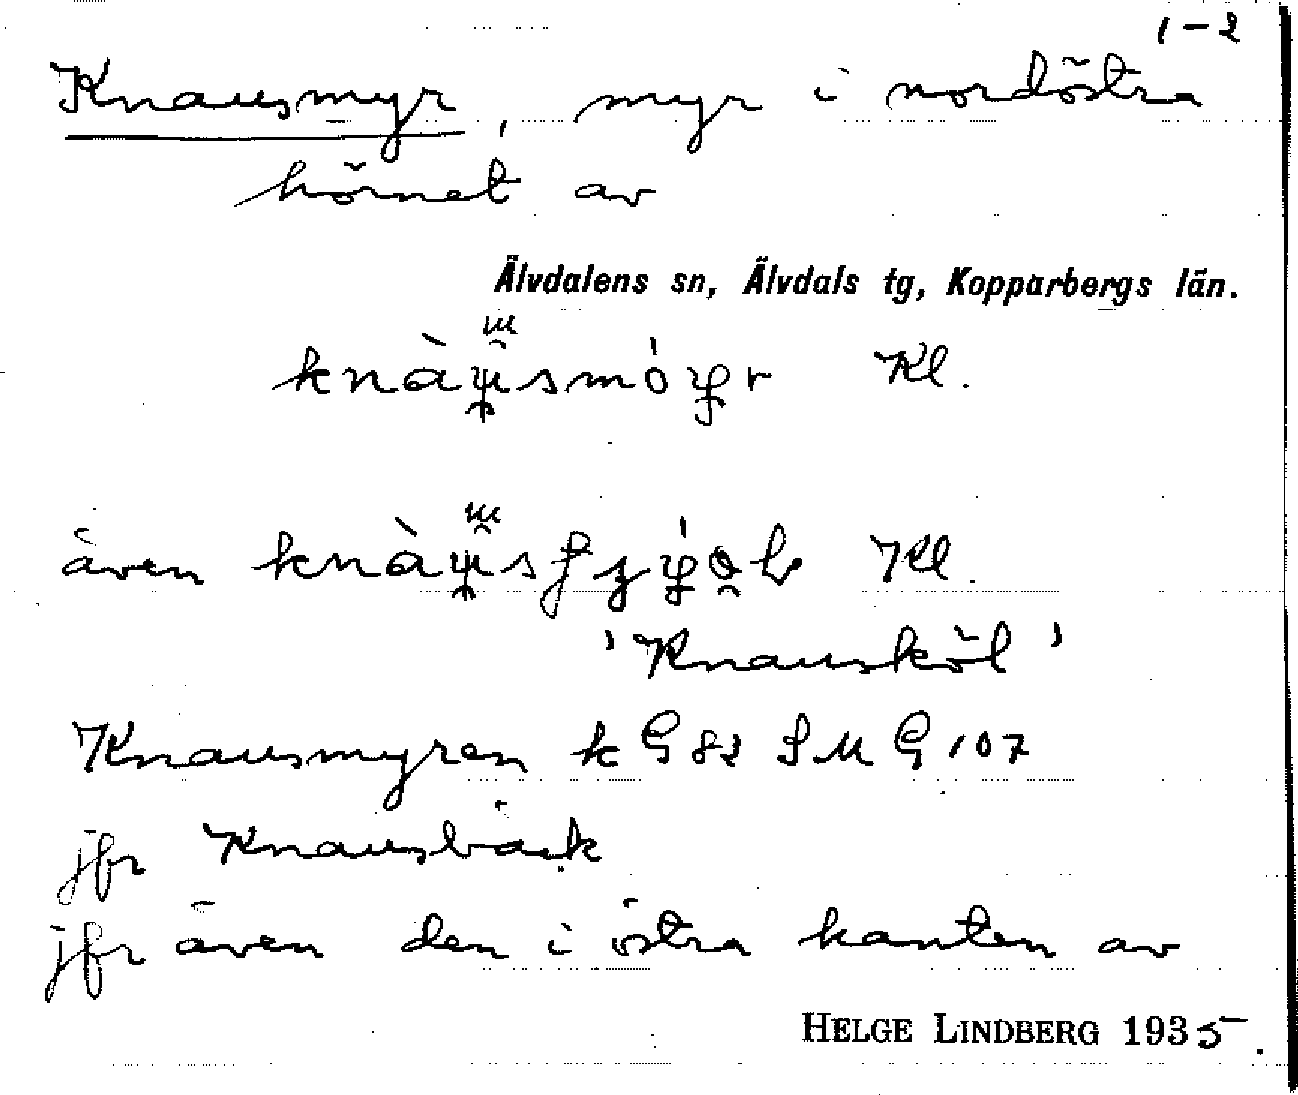 1-2
Knausmyr, myr i nordöstra
hörnet av
Älvdalens sn, Älvdals tg, Kopparbergs län.
Kl.
även Kl.
'Knausköl'
Knausmyren k G 82 SMG 107
jfr Knausbäck
jfr även den i östra kanten av
HELGE LINDBERG 1935.